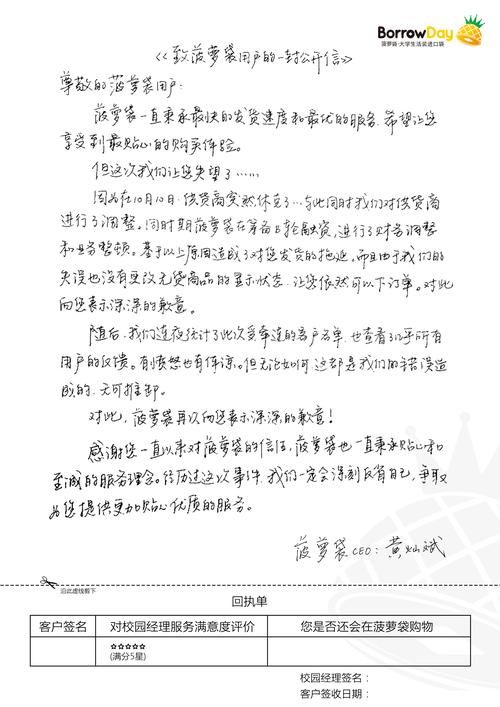 BorrowDay
菠萝袋·大学生活装进口袋
《致菠萝袋用户的一封公开信》
尊敬的菠萝袋用户:
菠萝袋一直秉承最快的发货速度和最优的服务,希望让您
享受到最贴心的购买体验。
但这次我们让您失望了……
因为在10月10日,供货商突然休克了…与此同时我们对供货商
进行了调整。同时期菠萝袋在筹备B轮融资,进行了财务调整
和业务整顿。基于以上原因造成了对您发货的拖延。而且由于我们的
失误也没有更改无货商品的显示状态,让您依然可以下订单。对此
向您表示深深的歉意。
随后,我们连夜统计了此次受牵连的客户名单,也查看了几乎所有
用户的反馈。有愤怒也有体谅。但无论如何,这都是我们的错误造
成的,无可推卸。
对此,菠萝袋再次向您表示深深的歉意!
感谢您一直以来对菠萝袋的信任,菠萝袋也一直秉承贴心和
至诚的服务理念。经历过这次事件,我们一定会深刻反省自己,争取
为您提供更加贴心优质的服务。
菠萝袋CEO:黄灿斌
沿此虚线剪下
回执单
客户签名 对校园经理服务满意度评价 您是否还会在菠萝袋购物
☆☆☆☆☆
(满分5星)
校园经理签名:
客户签收日期: